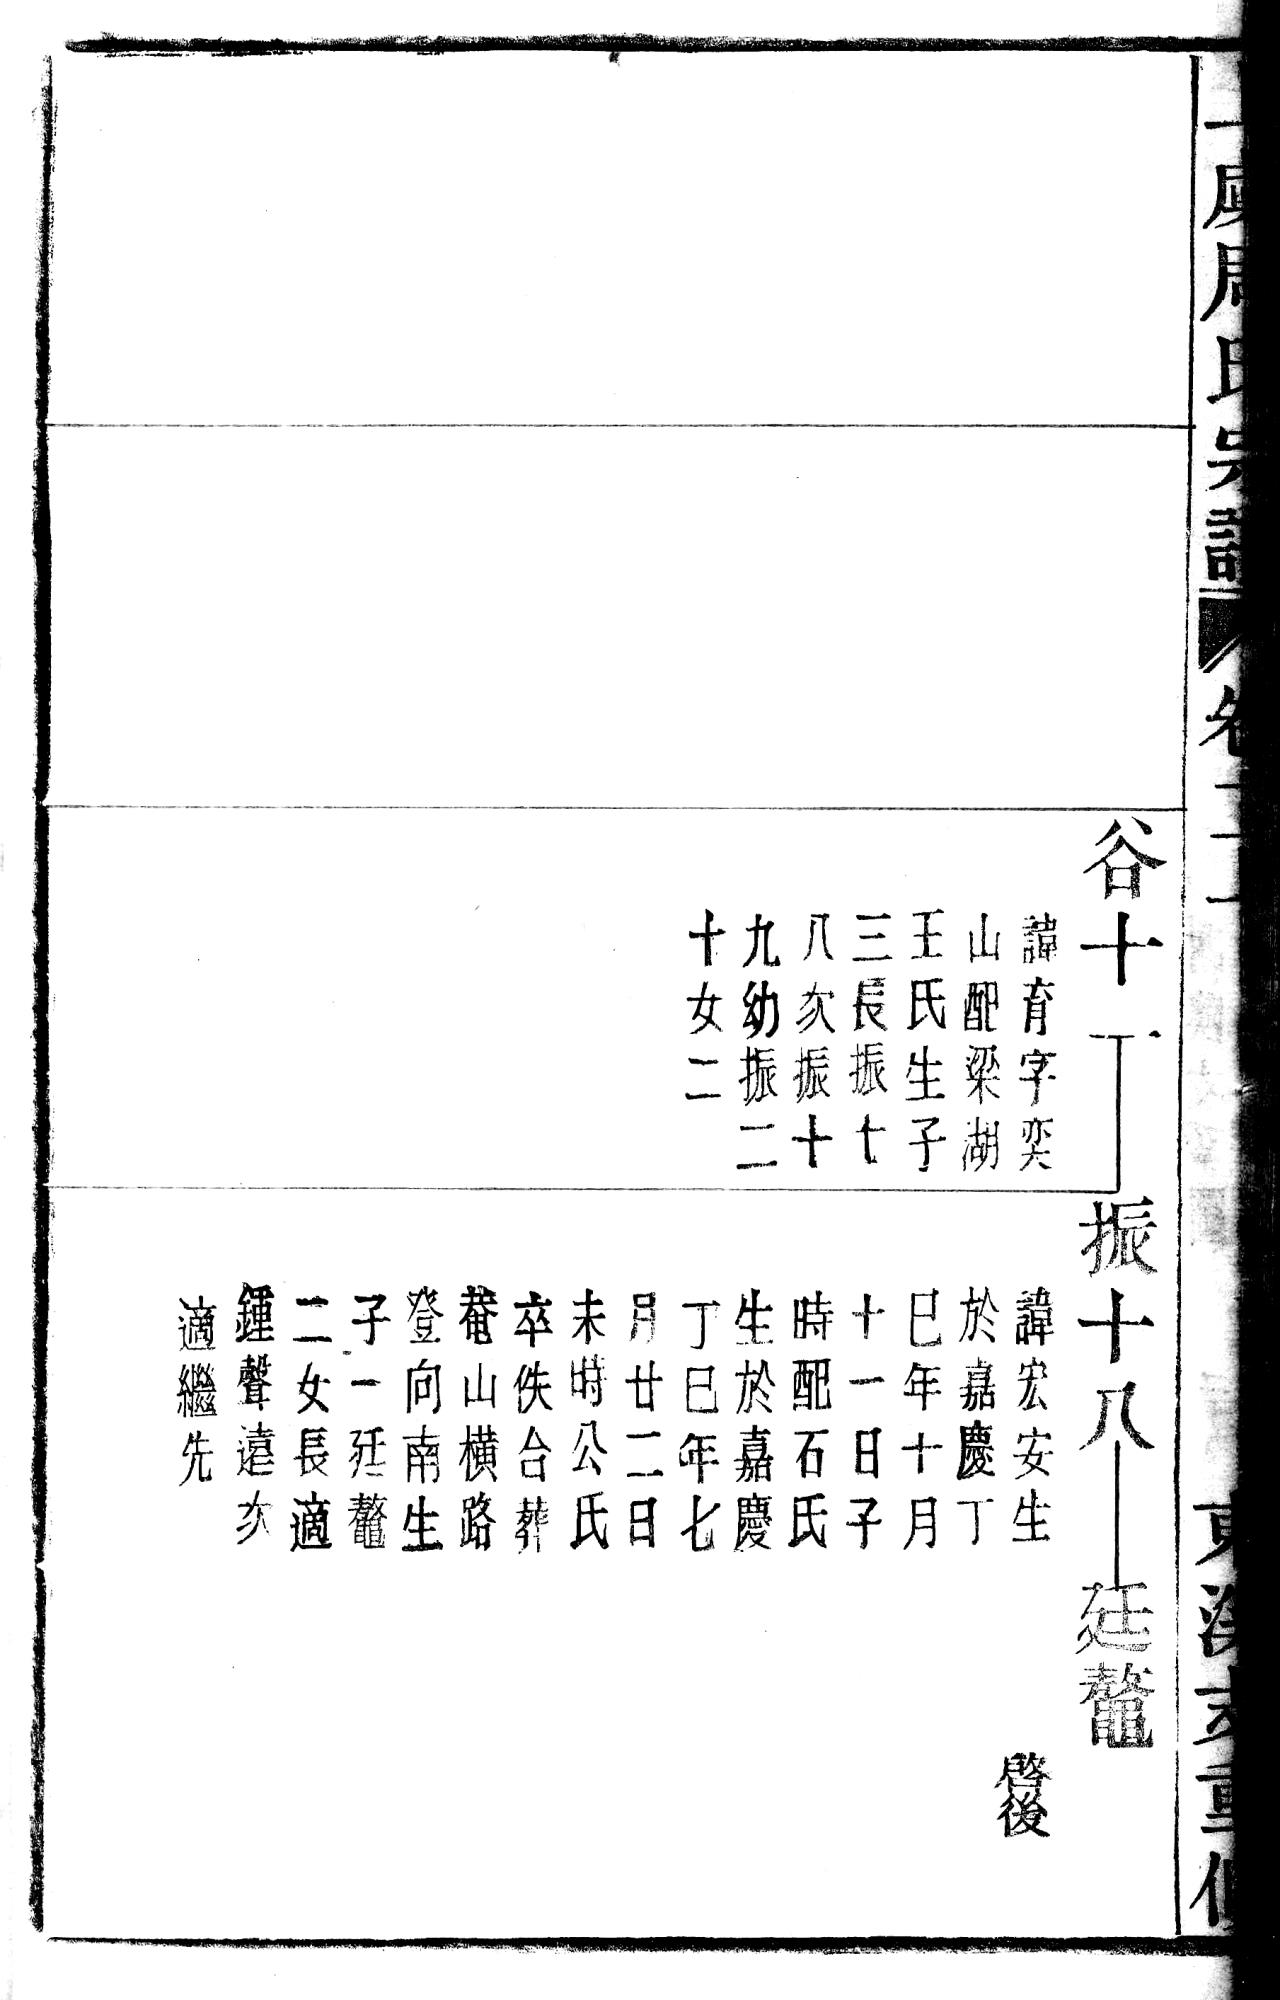 虞周氏宗譜
卷
重修
谷十一
諱育字奕
山配梁湖
王氏生子
三長振十
八次振十
九幼振二
十女二
振十八
諱宏安生
於嘉慶丁
巳年十月
十一日子
時配石氏
生於嘉慶
丁巳年七
月廿二日
未時公氏
卒佚合葬
菴山橫路
登向南生
子一廷鼇
二女長適
鍾聲遠次
適繼先
廷鼇
啓後